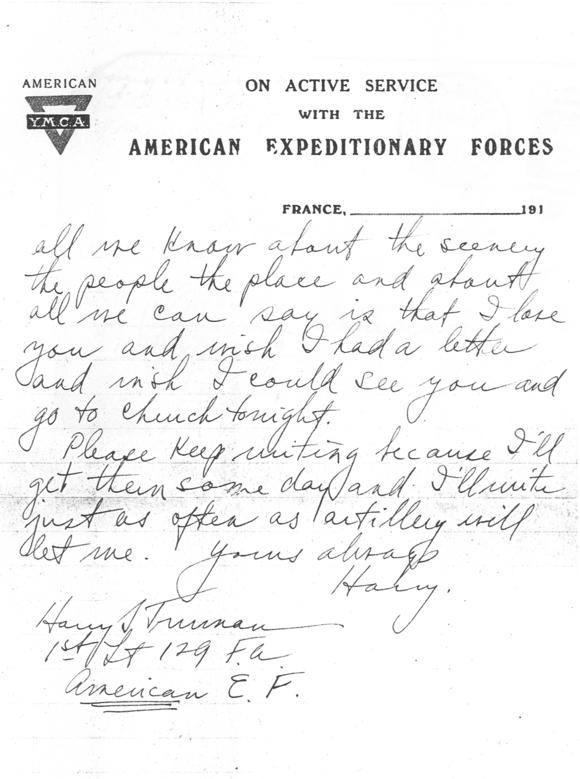 AMERICAN
Y.M.C.A.
ON ACTIVE SERVICE
WITH THE
AMERICAN EXPEDITIONARY FORCES
FRANCE, 191
all we know about the scenery
the people the place and about
all we can say is that I love
you and wish I had a letter
and wish I could see you and
go to church tonight.
Please keep writing because I'll
get them some day and I'll write
just as often as artillery will
let me. Yours always
Harry.
Harry S Truman
1st Lt 129 F.A.
American E. F.